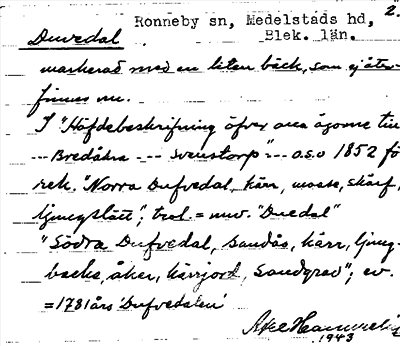 2.
Ronneby sn, Medelstads hd,
Blek. län.
Duvedal
markerad med en liten bäck, som ej åter-
finnes nu.
I "Häfdebeskrifning öfver ägorne till
--- Bredåkra --- Svenstorp" --- o.s.v 1852 fö
rek. "Norra Dufvedal, kärr, mosse, skarf,
ljungslätt"; trol. = nuv. "Duedal"
"Södra Dufvedal, sandås, kärr, ljung-
backe, åker, kärrjord, sandgrad"; ev.
= 1781 års 'Dufvedalen'
Axel
1943